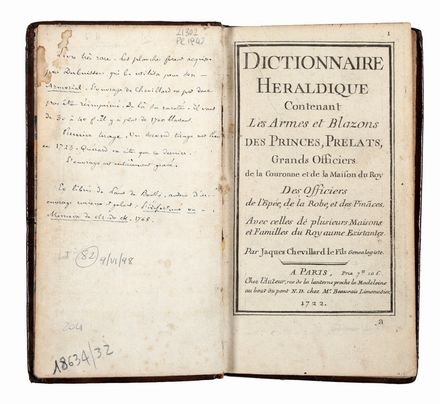 21302
PR 1947
Livre très rare. Les planches furent acquises
par Dubuisson qui les utilisa pour son
Armorial. L'ouvrage de Chevillard ne fut donc
pas été réimprimé. De là sa rareté. Il vaut
de 30 à 40 f. Il y a plus de 1700 blasons.
Premier tirage. Un second tirage eut lieu
en 1723. ne cite que ce dernier.
L'ouvrage est entièrement gravé.
Ex libris de
1765.
82
9/VI/98
204
18634/32
1
DICTIONNAIRE
HERALDIQUE
Contenant
Les Armes et Blazons
DES PRINCES, PRELATS,
Grands Officiers
de la Couronne et de la Maison du Roy
Des Officiers
de l'Epée, de la Robe, et des Finâces.
Avec celles de plusieurs Maisons
et Familles du Royaume Existantes.
Par Jaques Chevillard le Fils Genealogiste.
A PARIS, Prix 7lt 10 s.
Chez l'Auteur, rue de la lanterne proche la Madeleine
au bout du pont N.D. chez Mr. Beauvais Limonadier
1722.
a